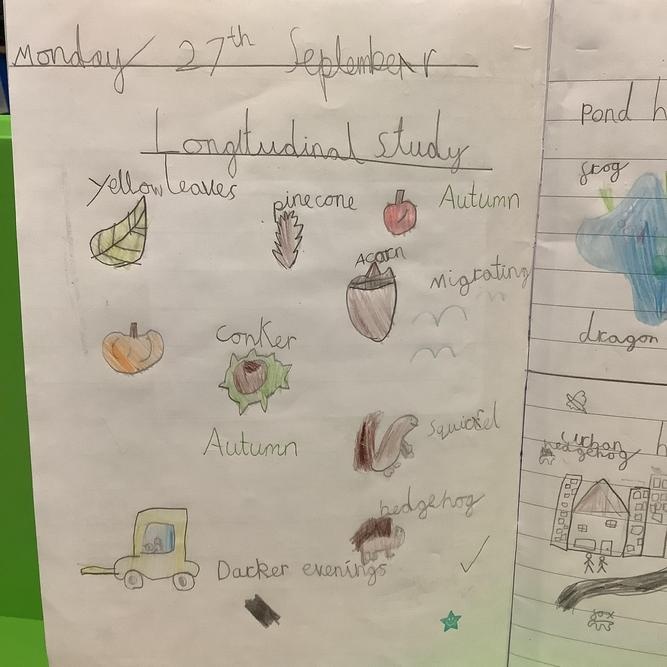 Monday 27th September
Longitudinal study
yellow leaves
pinecone
Autumn
Acorn
Migrating
conker
Squirrel
Autumn
hedgehog
Darker evenings
pond h
frog
dragon
urban h
hedgehog
fox